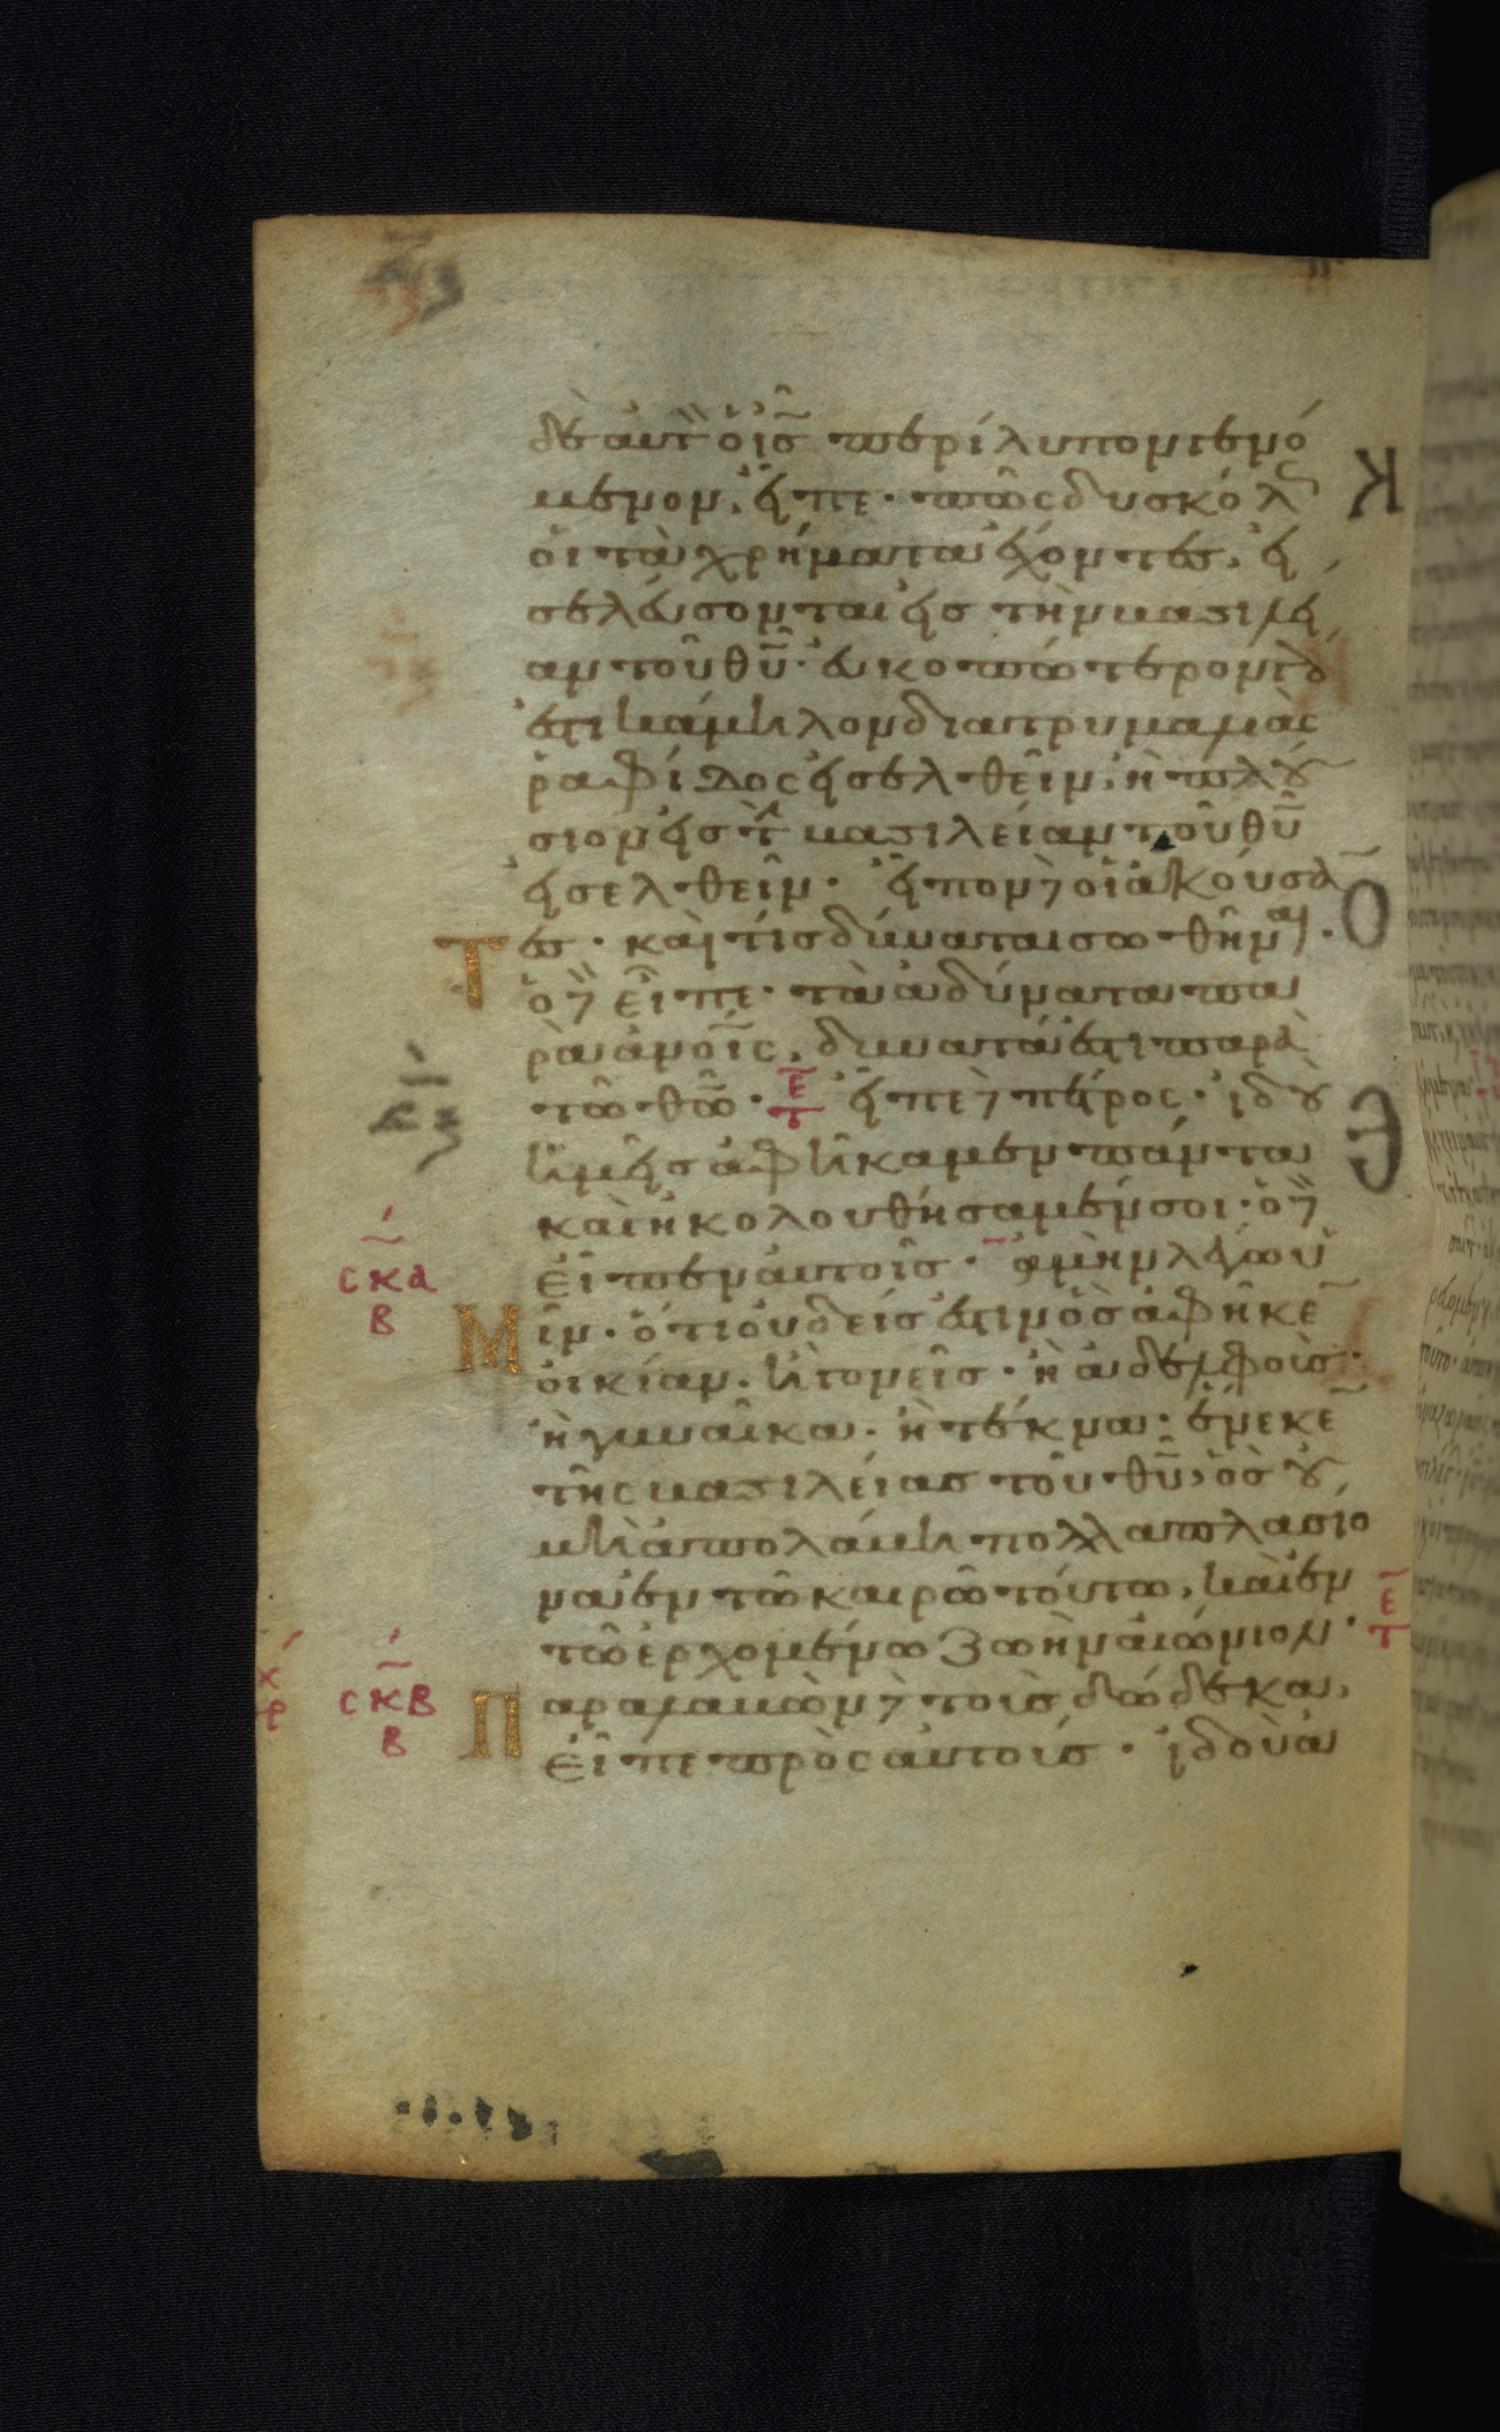 δὲ αυτ̀ ὁ ι̅σ̅ περίλυπον γενό
μενον, εἶπε· πῶς δυσκόλ
οἱ τὰ χρήματα ἔχοντες, εἰ
σελεύσονται εἰσ τὴν βασιλεί
αν τοῦ θ̅υ̅· εὐκοπώτερον γὰρ
ἐστι κάμηλον διὰ τρυμαλιᾶς
ῥαφίδος εἰσελθεῖν, ἢ πλού
σιον εἰσ τὴν βασιλείαν τοῦ θ̅υ̅
εἰσελθεῖν· εἶπον δὲ οἱ ἀκούσαν
Τες· καὶ τίς δύναται σωθῆναι·
ὁ δὲ εἶπε· τὰ ἀδύνατα πα
ρὰ ἀν̅ο̅ις, δυνατά ἐστι παρὰ
τῶ θ̅ω̅· ε̅τ εἶπε δὲ πέτρος· ἰδοὺ
ἡμεῖσ ἀφήκαμεν πάντα
καὶ ἠκολουθήσαμέν σοι· ὁ δὲ
εἶπεν αὐτοῖσ· ἀμὴν λέγω ὑ
Μῖν· ὅτι οὐδείσ ἐστιν ὃσ ἀφῆκεν
οἰκίαν· ἢ γονεῖσ· ἢ ἀδελφοὺσ·
ἢ γυναῖκα· ἢ τέκνα· ἕνεκεν
τῆς βασιλείασ τοῦ θ̅υ̅, ὃσ οὐ
μὴ ἀπολάβη πολλαπλασίο
να ἐν τῶ καιρῶ τούτω, καὶ ἐν
τῶ ἐρχομένω ζωὴν αἰώνιον· ε̅τ
Παραλαβὼν δὲ τοὺσ δώδεκα,
εἶπε πρὸς αὐτούσ· ἰδοὺ ἀ
σκα
β
σκβ
β